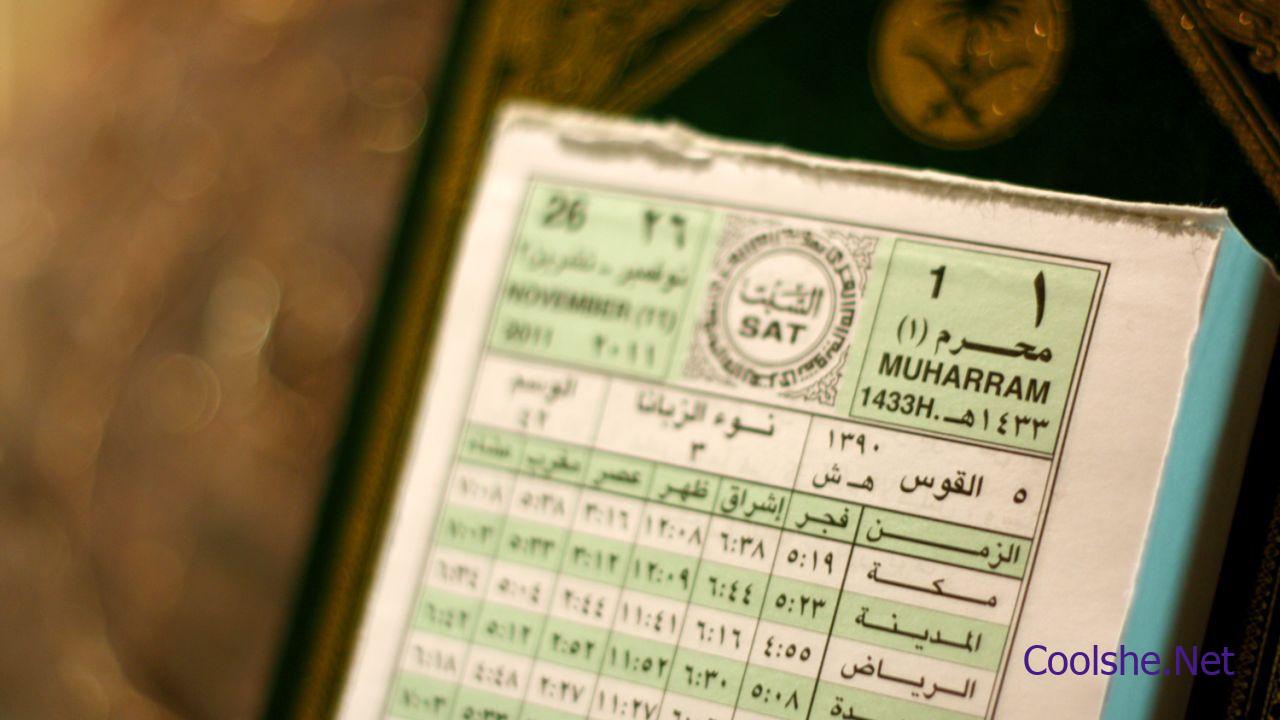 ١ 1
محرم (١)
MUHARRAM
1433H. ١٤٣٣هـ
السبت
SAT
٢٦ 26
نوفمبر - تشرين٢
NOVEMBER (١١)
٢٠١١ 2011
٥ القوس ١٣٩٠ هـ ش
نوء الزبانا
٣
الوسم
٤٢
الزمن فجر إشراق ظهر عصر مغرب عشاء
مكة ٥:١٩ ٦:٣٨ ١٢:٠٨ ٣:١٦ ٥:٣٨ ٧:٠٨
المدينة ٥:٢٣ ٦:٤٤ ١٢:٠٩ ٣:١٢ ٥:٣٣ ٧:٠٣
الرياض ٤:٥٥ ٦:١٦ ١١:٤١ ٢:٤٤ ٥:٠٤ ٦:٣٤
٥:٠٨ ٦:٣٠ ١١:٥٢ ٢:٥٢ ٥:١٢ ٦:٤٢
١١:٢٧ ٢:٢٧ ٤:٤٨ ٦:١٨
٥:٣٣ ٧:٠٣
Coolshe.Net